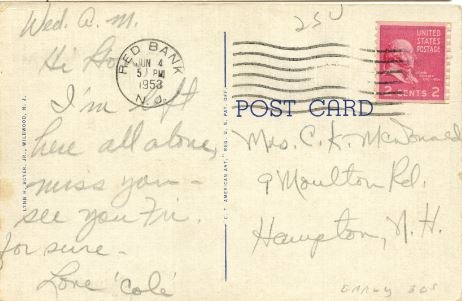 Wed. A.M.
Hi
I'm left
here all alone,
miss you -
see you Fri.
for sure -
Love 'Cole'
RED BANK
JUN 4
5 PM
1953
N.J.
250
UNITED
STATES
POSTAGE
2 CENTS 2
POST CARD
Mrs. C. K. McDonald
9 Moulton Rd.
Hampton, N. H.
LYNN H. BOYER, JR., WILDWOOD, N. J.
C. T. AMERICAN ART, REG. U. S. PAT. OFF.